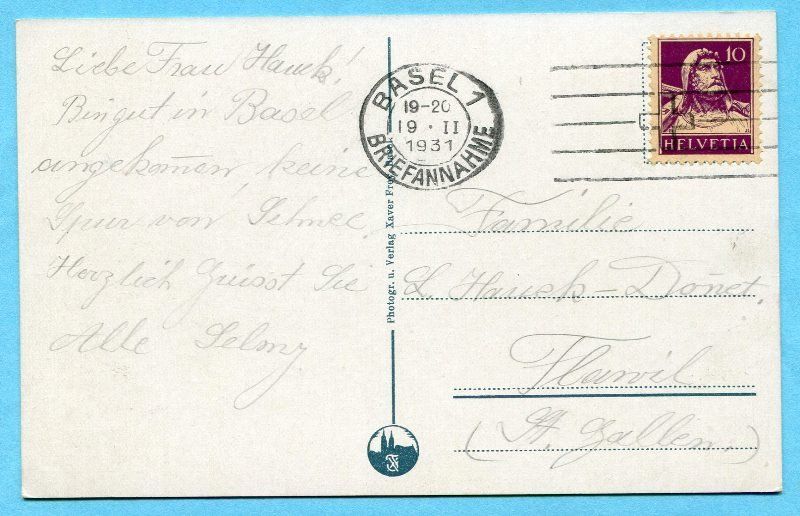 Liebe Frau Hauck!
Bin gut in Basel
angekom̄en, keine
Spur von Schnee.
Herzlich Grüsst Sie
Alle Selmy
BASEL 1
19-20
19 · II
1931
BRIEFANNAHME
10
HELVETIA
Photogr. u. Verlag Xaver
Familie
L. Hauck-Don̄et.
Flawil
(St. Gallen.)